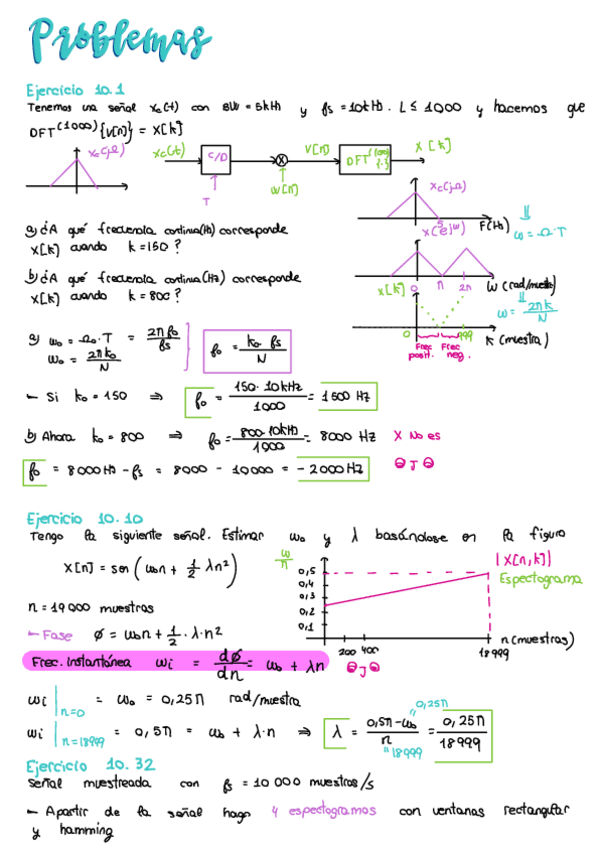 Problemas
Ejercicio 10.1
Tenemos una señal xc(t) con BW = 5kHz y fs = 10kHz. L ≤ 1000 y hacemos que
DFT^(1000){v[n]} = X[k]
Xc(jΩ)
xc(t)
C/D
T
w[n]
V[n]
DFT^(1000){·}
X[k]
Xc(jΩ)
F(Hz)
ω = Ω·T
X(e^jω)
0 π 2π
ω (rad/muestra)
ω = 2πk/N
X[k]
0 999
k (muestra)
Frec posit. Frec neg.
a) ¿A qué frecuencia continua(Hz) corresponde
X[k] cuando k = 150 ?
b) ¿A qué frecuencia continua(Hz) corresponde
X[k] cuando k = 800 ?
a) ω₀ = Ω₀·T = 2πf₀/fs
ω₀ = 2πk₀/N
f₀ = k₀·fs/N
← Si k₀ = 150 ⇒ f₀ = 150·10kHz/1000 = 1500 Hz
b) Ahora k₀ = 800 ⇒ f₀ = 800·10kHz/1000 = 8000 Hz X No es
f₀ = 8000Hz - fs = 8000 - 10000 = -2000Hz OJO
Ejercicio 10.10
Tengo la siguiente señal. Estimar ω₀ y λ basándose en la figura
X[n] = sen(ω₀n + 1/2 λn²)
ω/π
0,5
0,4
0,3
0,2
0,1
200 400 18999
n(muestras)
|X[n,k]|
Espectograma
n = 19000 muestras
← Fase φ = ω₀n + 1/2·λ·n²
Frec. Instantánea ωi = dφ/dn = ω₀ + λn OJO
ωi |n=0 = ω₀ = 0,25π rad/muestra
ωi |n=18999 = 0,5π = ω₀ + λ·n ⇒ λ = 0,5π-ω₀/n = 0,25π/18999
"0,25π
"18999
Ejercicio 10.32
Señal muestreada con fs = 10 000 muestras/s
← A partir de la señal hago 4 espectogramas con ventanas rectangular
y hamming